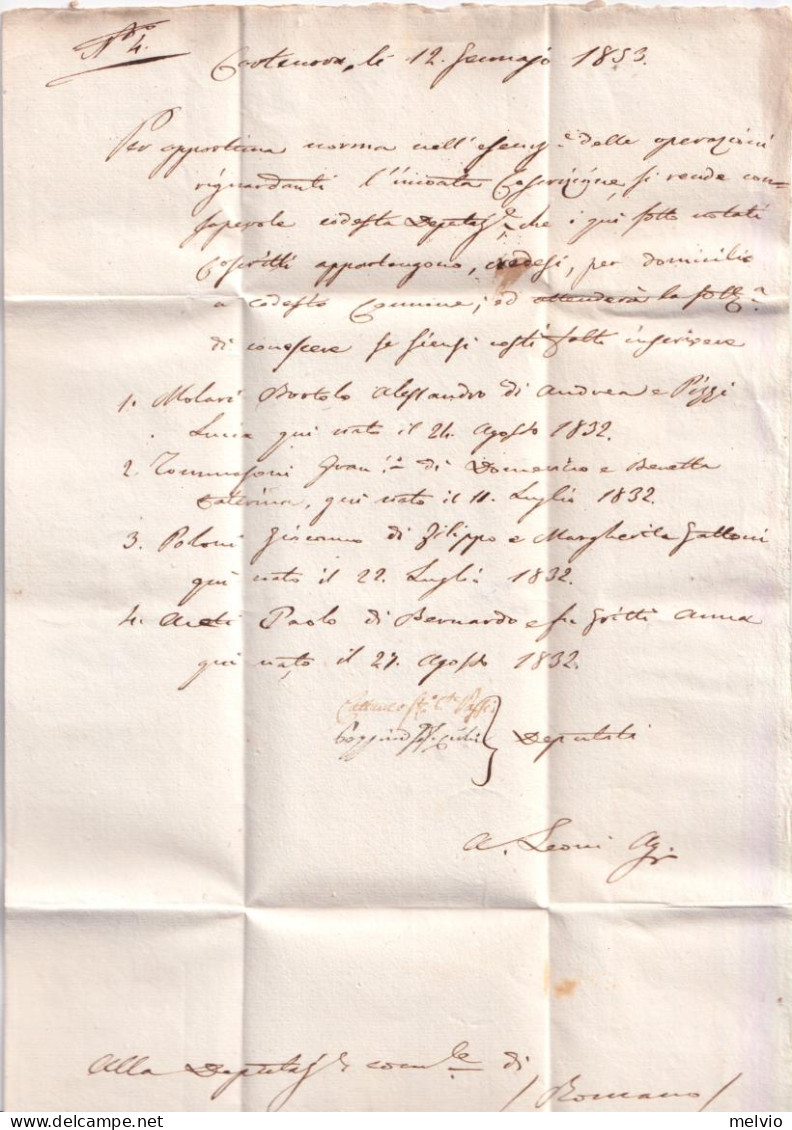 N.ro 4.
Cortenova, lì 12. Gennajo 1853.
Per opportuna norma nell'esenz.e delle operazioni
riguardanti l'iniziata Coscrizione, si rende con=
sapevole codesta Deputaz.e che i qui sotto notati
Coscritti appartengono, credesi, per domicilio
a codesto Comune; ed attenderà la sott.a
di conoscere se siensi costì fatti inscrivere
1. Molari Bortolo Alessandro di Andrea e Pizzi
Lucia qui nato il 24. Agosto 1832.
2. Tommasoni Fran.o di Domenico e Benetta
Caterina, qui nato il 11. Luglio 1832.
3. Poloni Giacomo di Filippo e Margherita Gattoni
qui nato il 22. Luglio 1832.
4. Paolo di Bernardo e fu Gritti Anna
qui nato il 27. Agosto 1832.
Deputati
A. Leoni Ag.
Alla Deputaz.e com.le di
/ Romano /
melvio
delcampe.net